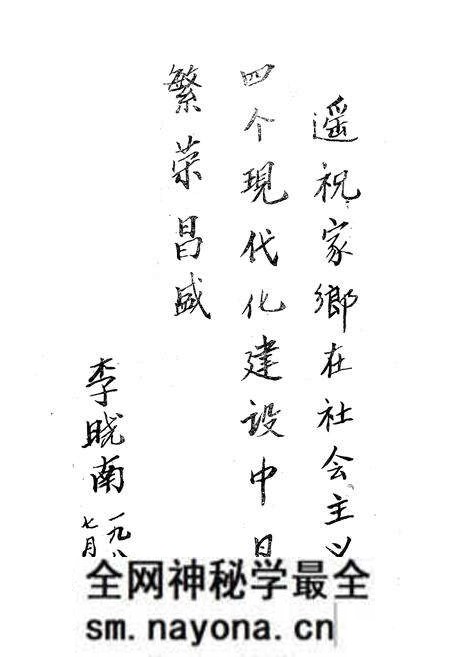 遥祝家鄉在社会主义
四个现代化建设中日
繁荣昌盛
李晓南
一九八
七月
全网神秘学最全
sm.nayona.cn